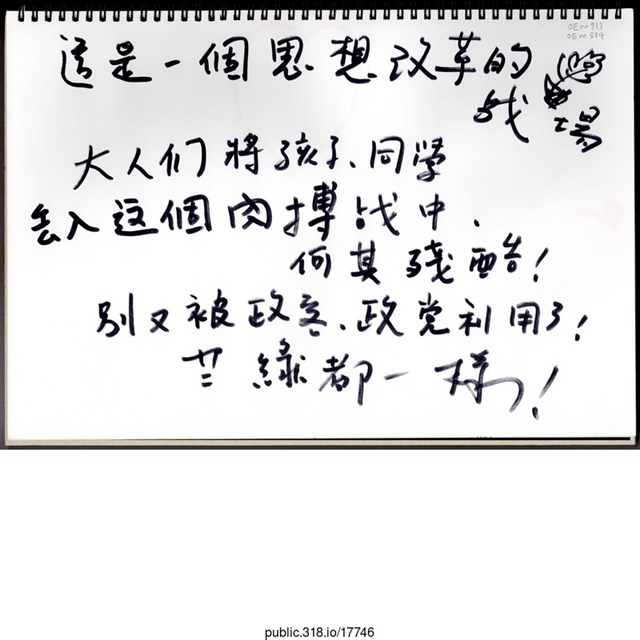 這是一個思想改革的
战場
大人们將孩子、同學
丟入這個肉搏战中.
何其殘酷!
別又被政客、政党利用了!
芒綠都一樣!
public.318.io/17746